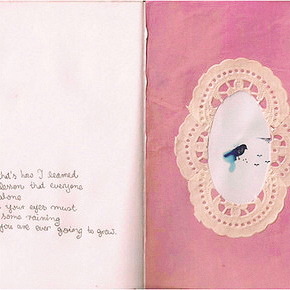 that's how I learned
lesson that everyone
alone
your eyes must
some raining
you are ever going to grow.